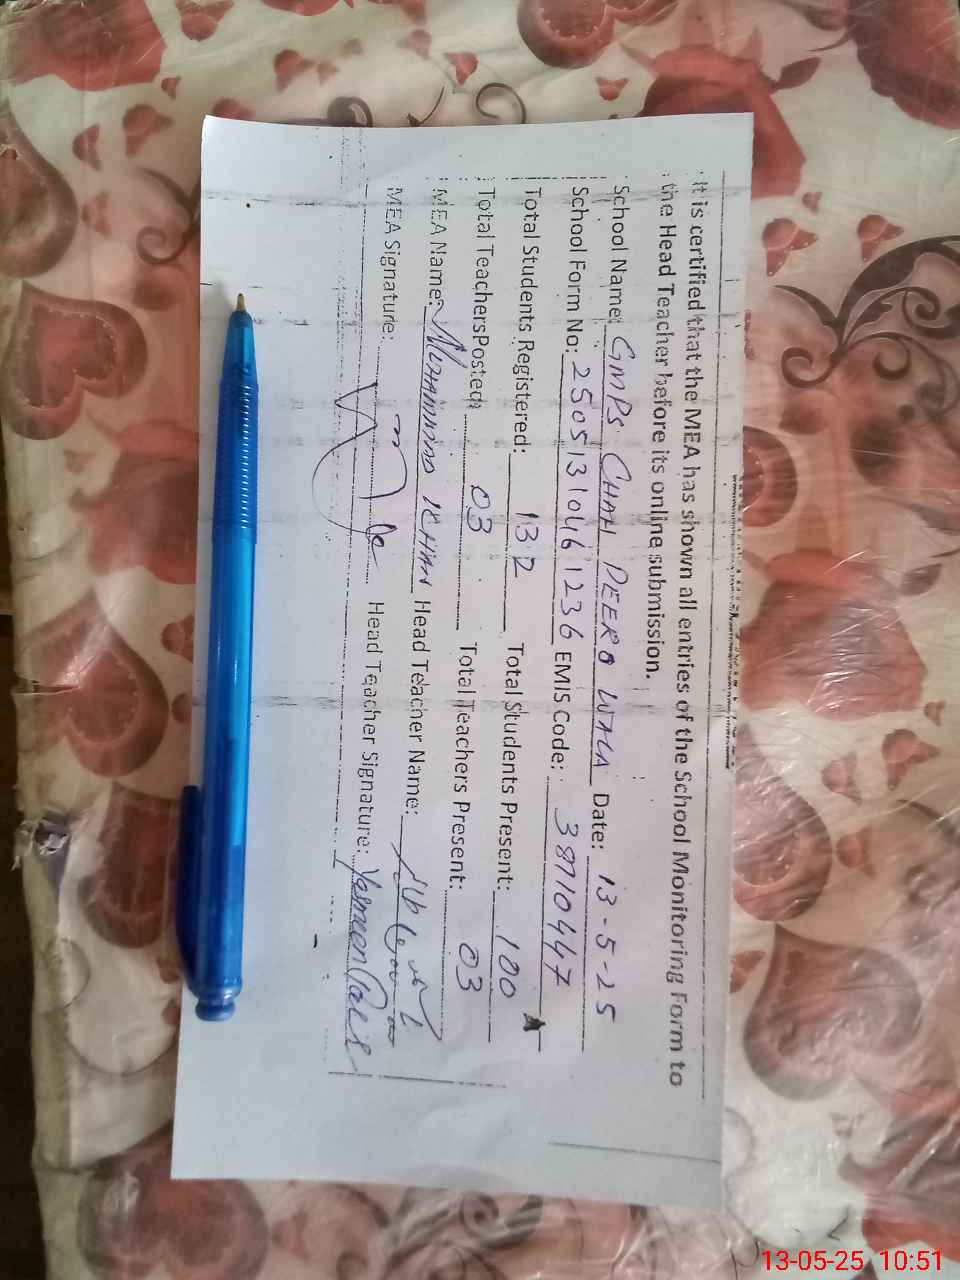 It is certified that the MEA has shown all entries of the School Monitoring Form to
the Head Teacher before its online submission.
School Name: GMPS CHAH PEERO WALA Date: 13-5-25
School Form No: 25051310461236 EMIS Code: 38710447
Total Students Registered: 132 Total Students Present: 100
Total Teachers Posted: 03 Total Teachers Present: 03
MEA Name: MUHAMMAD KHAN Head Teacher Name:
MEA Signature: Head Teacher Signature: Yasmeen
13-05-25 10:51